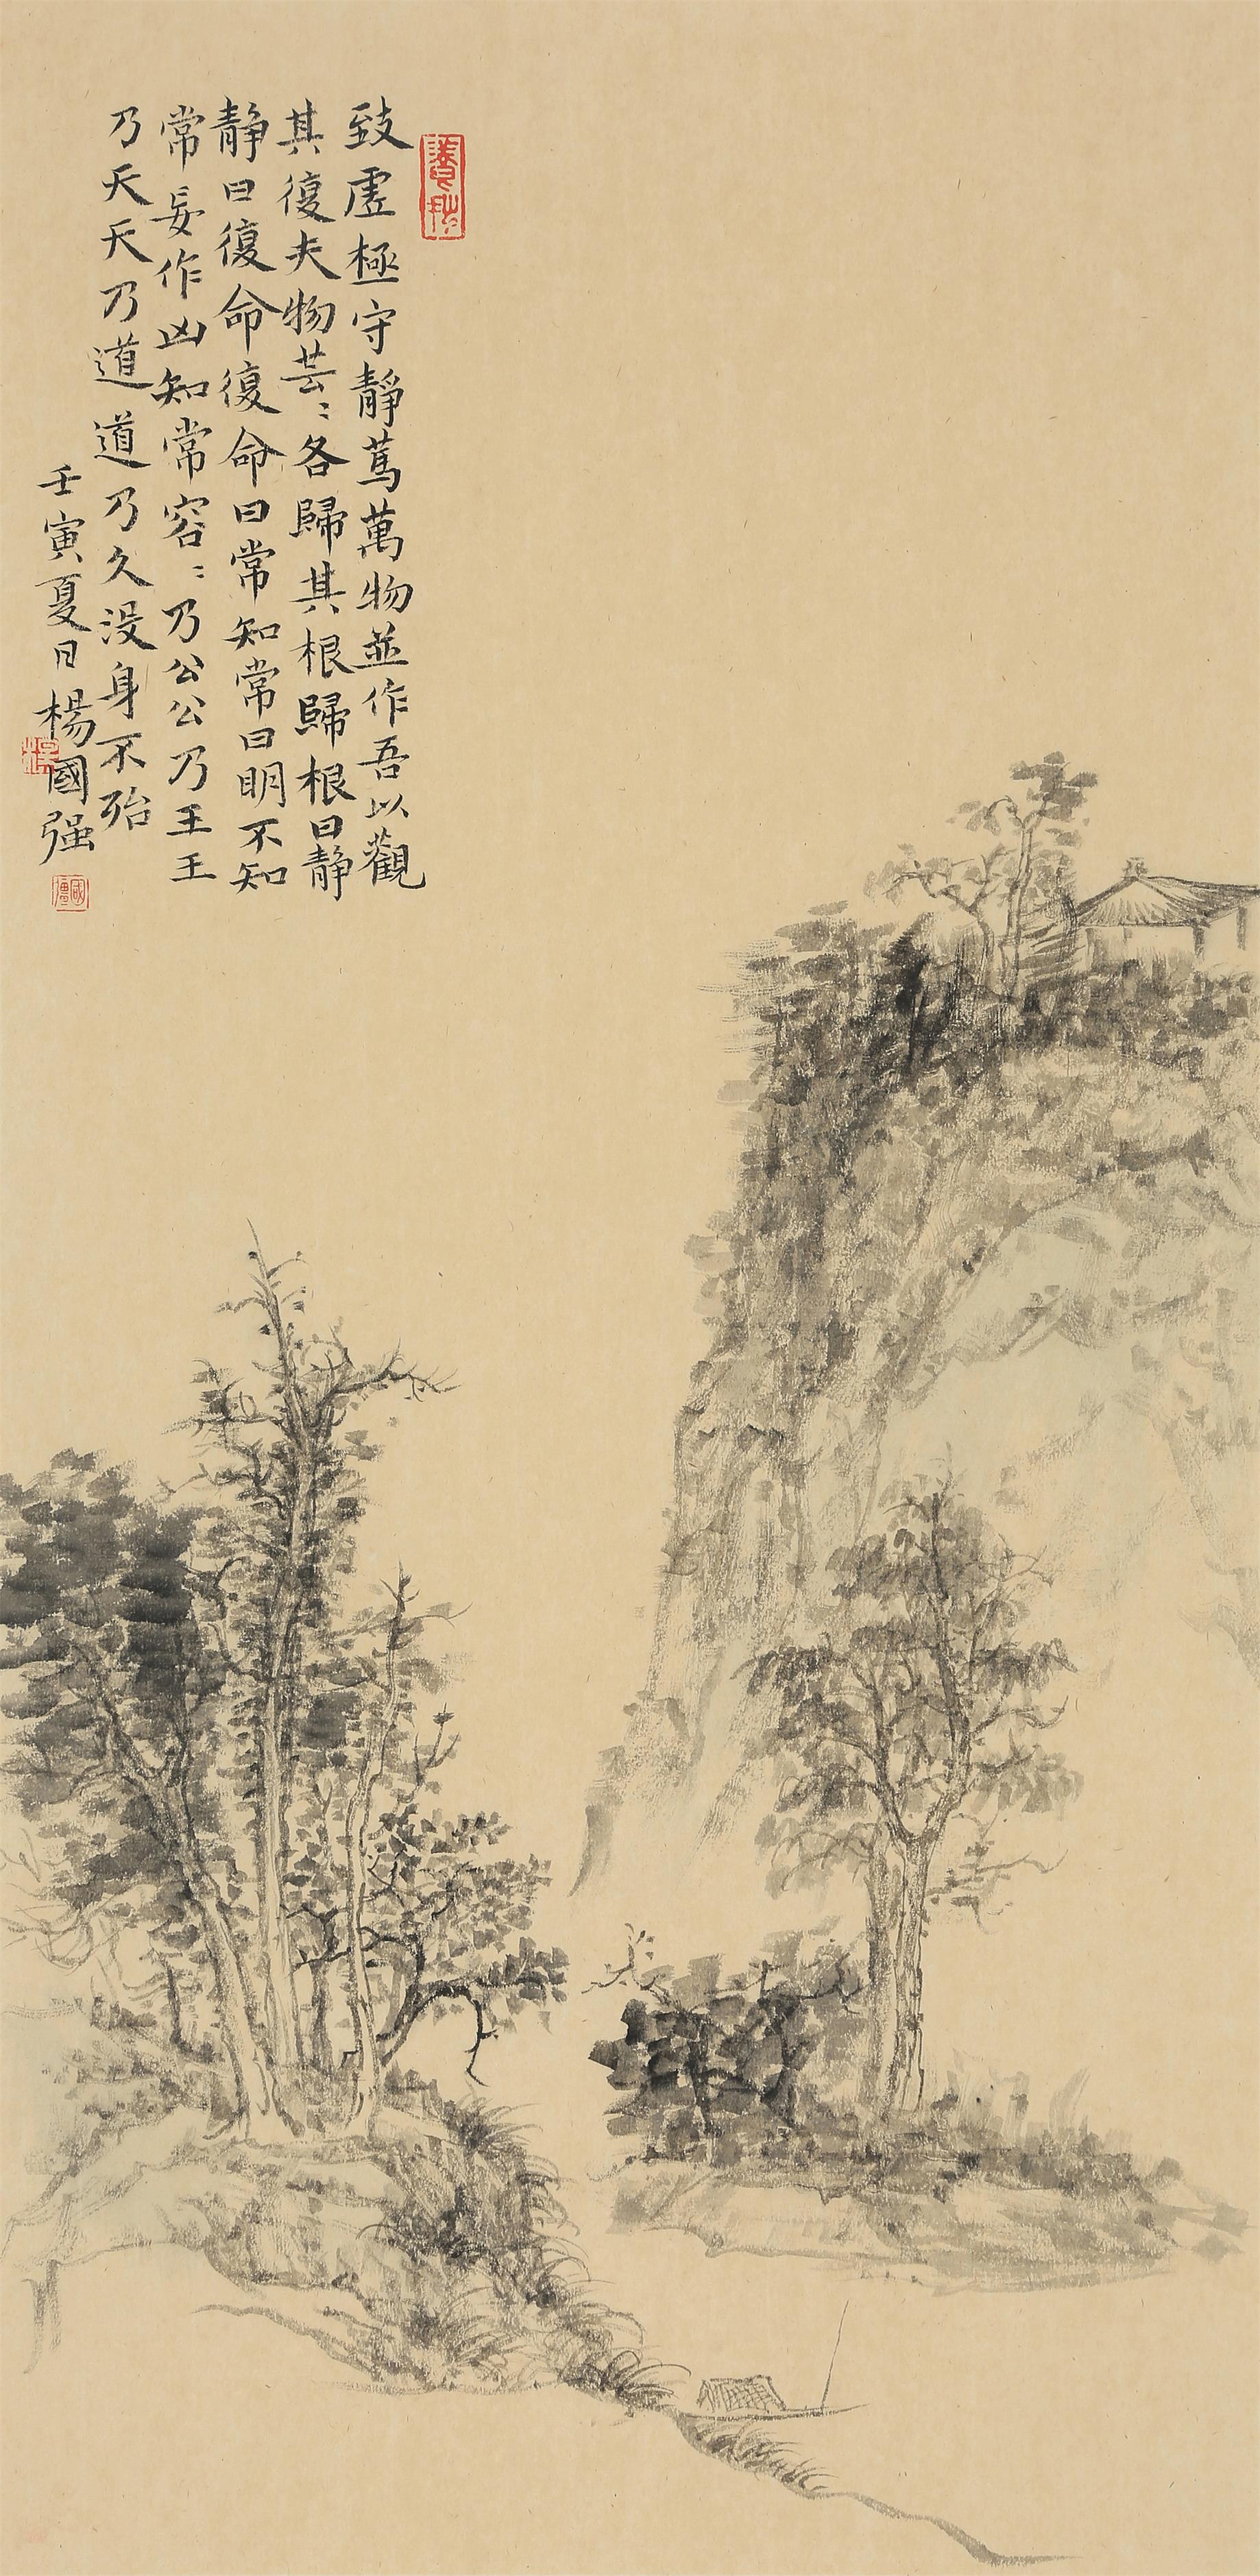 致虛極守靜篤萬物並作吾以觀
其復夫物芸〻各歸其根歸根曰靜
靜曰復命復命曰常知常曰明不知
常妄作凶知常容〻乃公公乃王王
乃天天乃道道乃久沒身不殆
壬寅夏日楊國强
楊
國彊